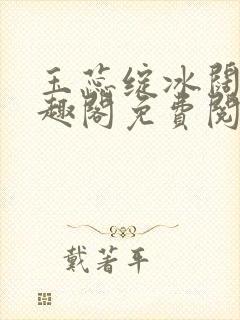 玉蕊绽冰阔
趣阁免费阅
戴著平